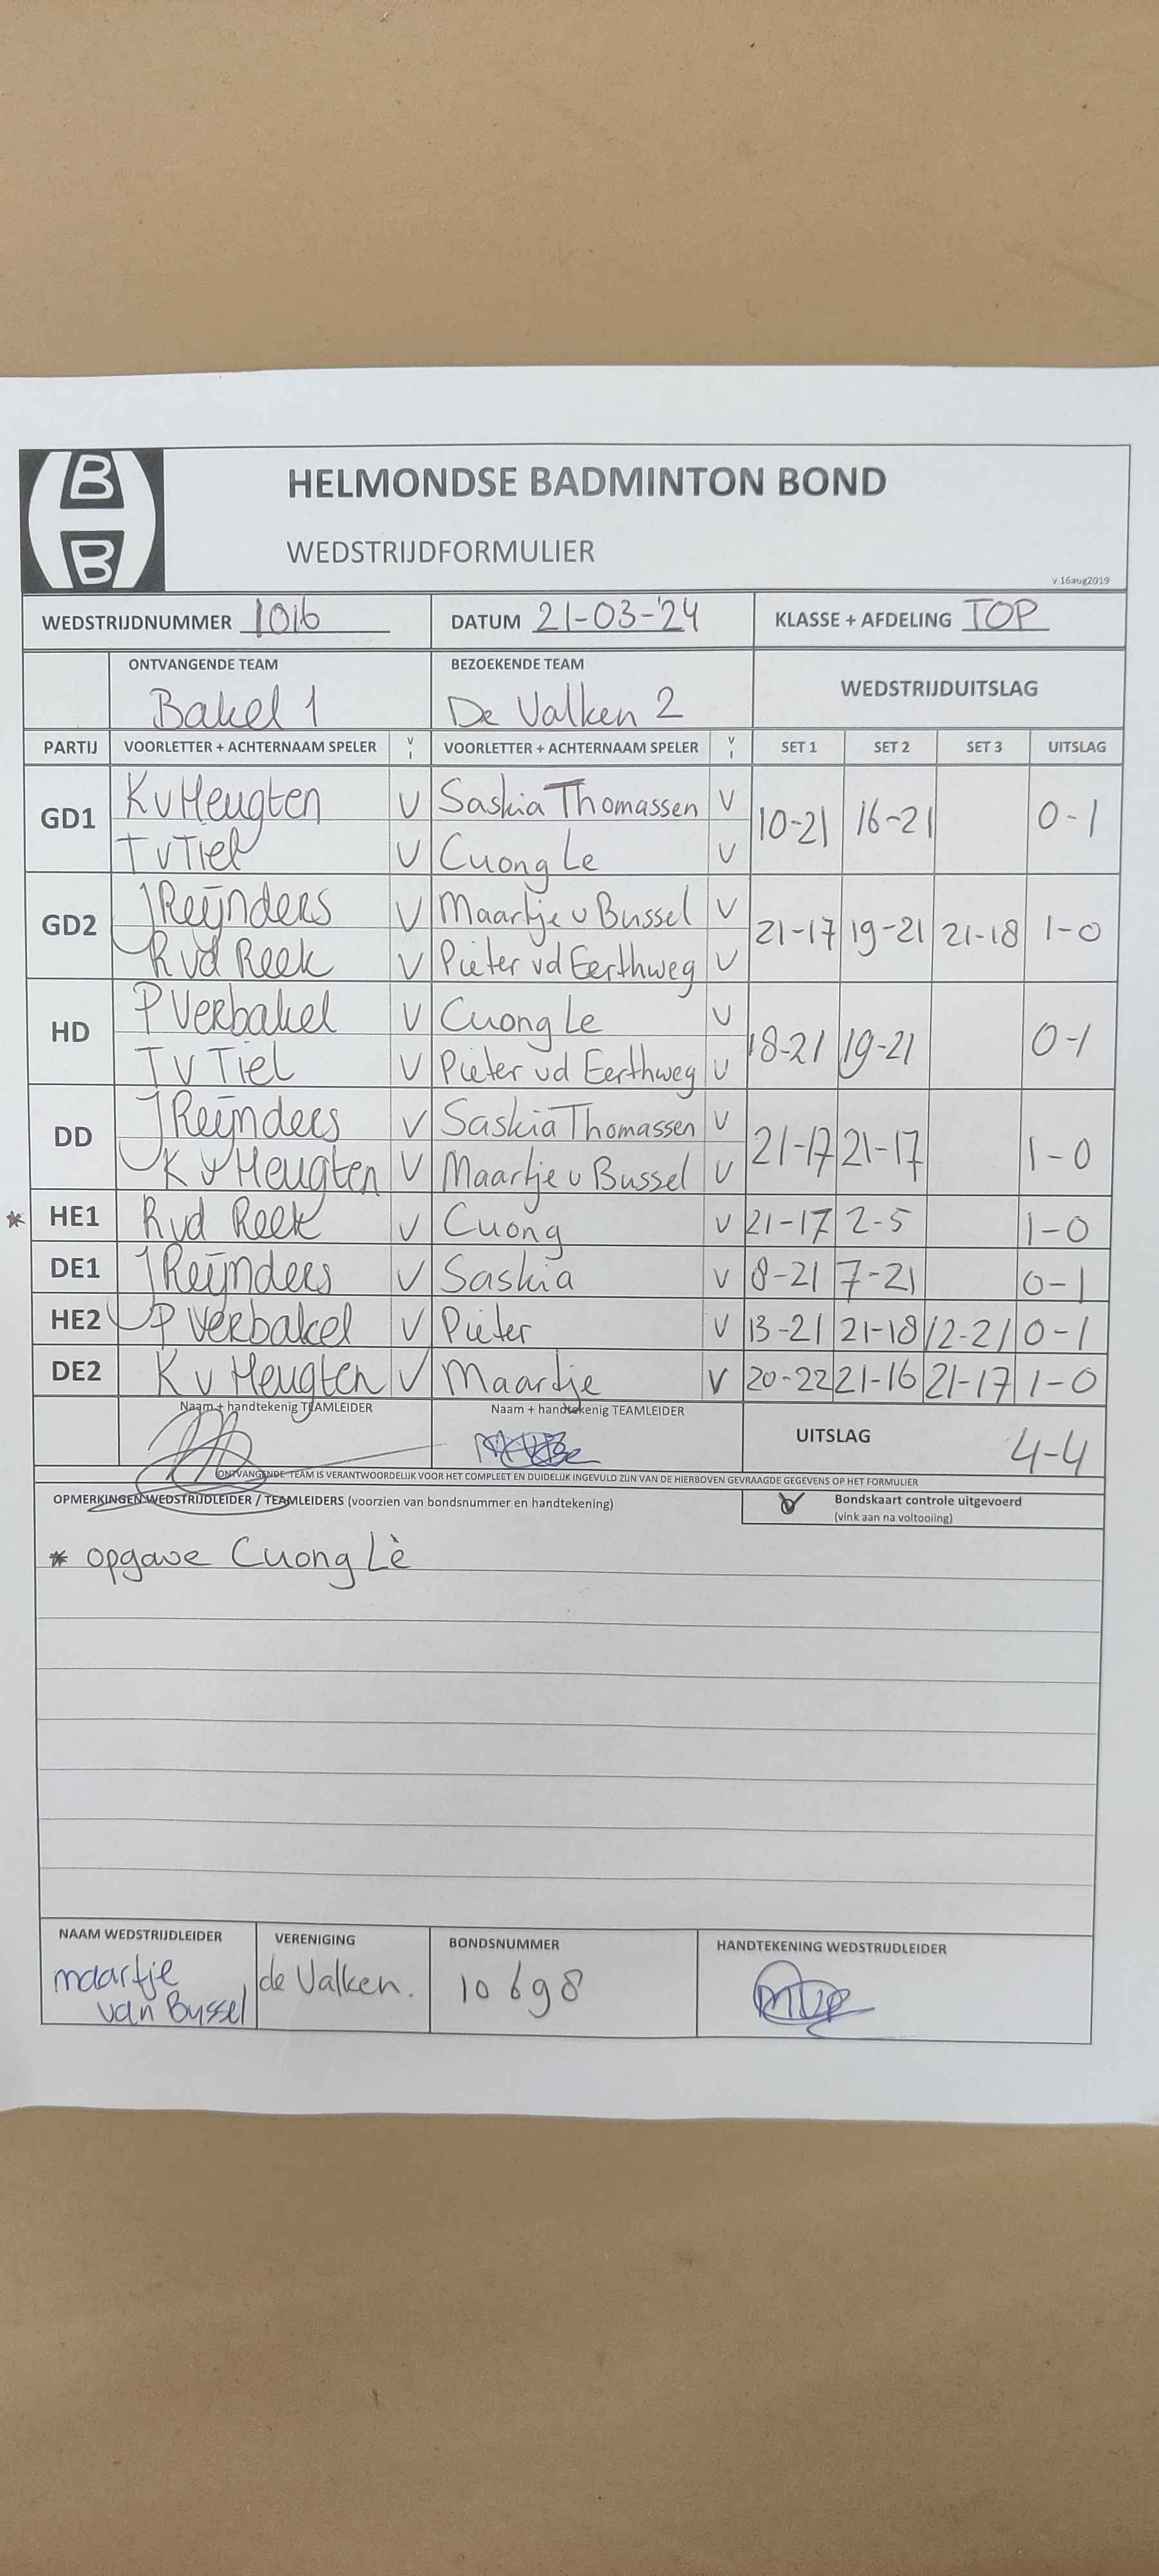 B
B
HELMONDSE BADMINTON BOND
WEDSTRIJDFORMULIER
v.16aug2019
WEDSTRIJDNUMMER 1016 DATUM 21-03-'24 KLASSE + AFDELING TOP
ONTVANGENDE TEAM BEZOEKENDE TEAM WEDSTRIJDUITSLAG
Bakel 1 De Valken 2
PARTIJ VOORLETTER + ACHTERNAAM SPELER V I VOORLETTER + ACHTERNAAM SPELER V I SET 1 SET 2 SET 3 UITSLAG
GD1 K v Heugten V Saskia Thomassen V 10-21 16-21 0-1
T v Tiel V Cuong Le V
GD2 J Reijnders V Maartje v Bussel V 21-17 19-21 21-18 1-0
R vd Reek V Pieter vd Eerthweg V
HD P Verbakel V Cuong Le V 18-21 19-21 0-1
T v Tiel V Pieter vd Eerthweg V
DD J Reijnders V Saskia Thomassen V 21-17 21-17 1-0
K v Heugten V Maartje v Bussel V
* HE1 R vd Reek V Cuong V 21-17 2-5 1-0
DE1 J Reijnders V Saskia V 8-21 7-21 0-1
HE2 P Verbakel V Pieter V 13-21 21-18 12-21 0-1
DE2 K v Heugten V Maartje V 20-22 21-16 21-17 1-0
Naam + handtekenig TEAMLEIDER Naam + handtekenig TEAMLEIDER UITSLAG 4-4
ONTVANGENDE TEAM IS VERANTWOORDELIJK VOOR HET COMPLEET EN DUIDELIJK INGEVULD ZIJN VAN DE HIERBOVEN GEVRAAGDE GEGEVENS OP HET FORMULIER
OPMERKINGEN WEDSTRIJDLEIDER / TEAMLEIDERS (voorzien van bondsnummer en handtekening) V Bondskaart controle uitgevoerd
(vink aan na voltooiing)
* opgave Cuong Lè
NAAM WEDSTRIJDLEIDER VERENIGING BONDSNUMMER HANDTEKENING WEDSTRIJDLEIDER
maartje de Valken. 10698
van Bussel